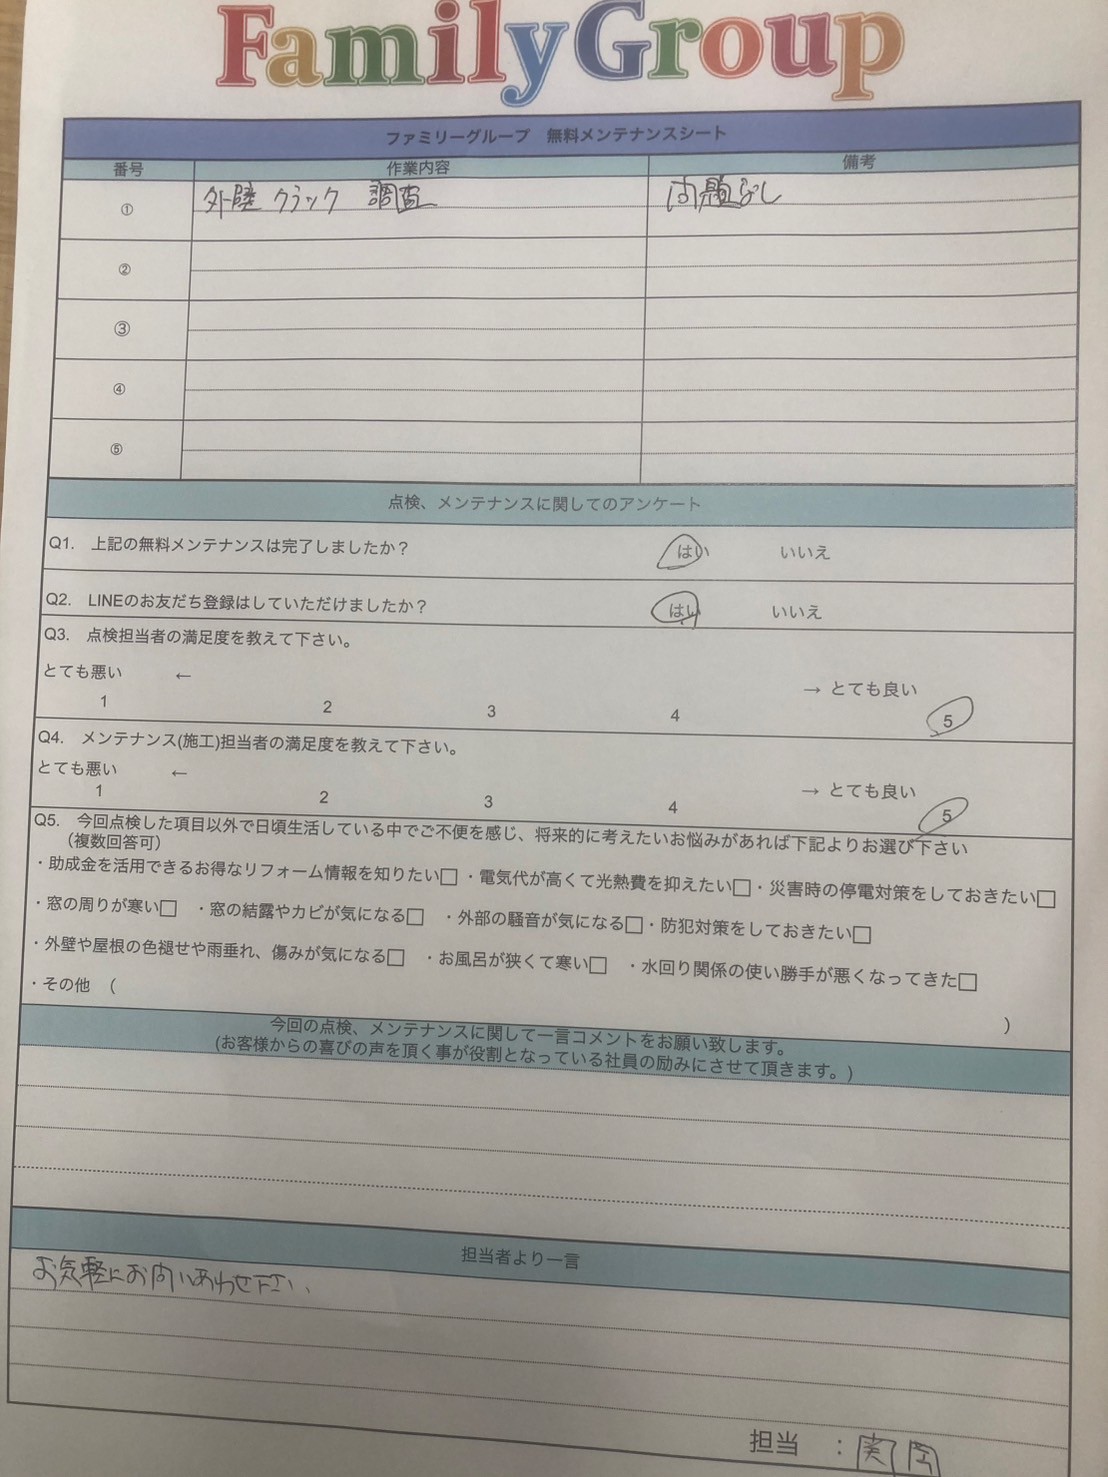 FamilyGroup
ファミリーグループ　無料メンテナンスシート
番号 作業内容 備考
① 外壁 クラック 調査 問題なし
②
③
④
⑤
点検、メンテナンスに関してのアンケート
Q1.　上記の無料メンテナンスは完了しましたか？ はい いいえ
Q2.　LINEのお友だち登録はしていただけましたか？ はい いいえ
Q3.　点検担当者の満足度を教えて下さい。
とても悪い ← → とても良い
1 2 3 4 5
Q4.　メンテナンス(施工)担当者の満足度を教えて下さい。
とても悪い ← → とても良い
1 2 3 4 5
Q5.　今回点検した項目以外で日頃生活している中でご不便を感じ、将来的に考えたいお悩みがあれば下記よりお選び下さい
（複数回答可）
・助成金を活用できるお得なリフォーム情報を知りたい□ ・電気代が高くて光熱費を抑えたい□ ・災害時の停電対策をしておきたい□
・窓の周りが寒い□ ・窓の結露やカビが気になる□ ・外部の騒音が気になる□ ・防犯対策をしておきたい□
・外壁や屋根の色褪せや雨垂れ、傷みが気になる□ ・お風呂が狭くて寒い□ ・水回り関係の使い勝手が悪くなってきた□
・その他 （ ）
今回の点検、メンテナンスに関して一言コメントをお願い致します。
(お客様からの喜びの声を頂く事が役割となっている社員の励みにさせて頂きます。)
担当者より一言
お気軽にお問いあわせ下さい、
担当　：